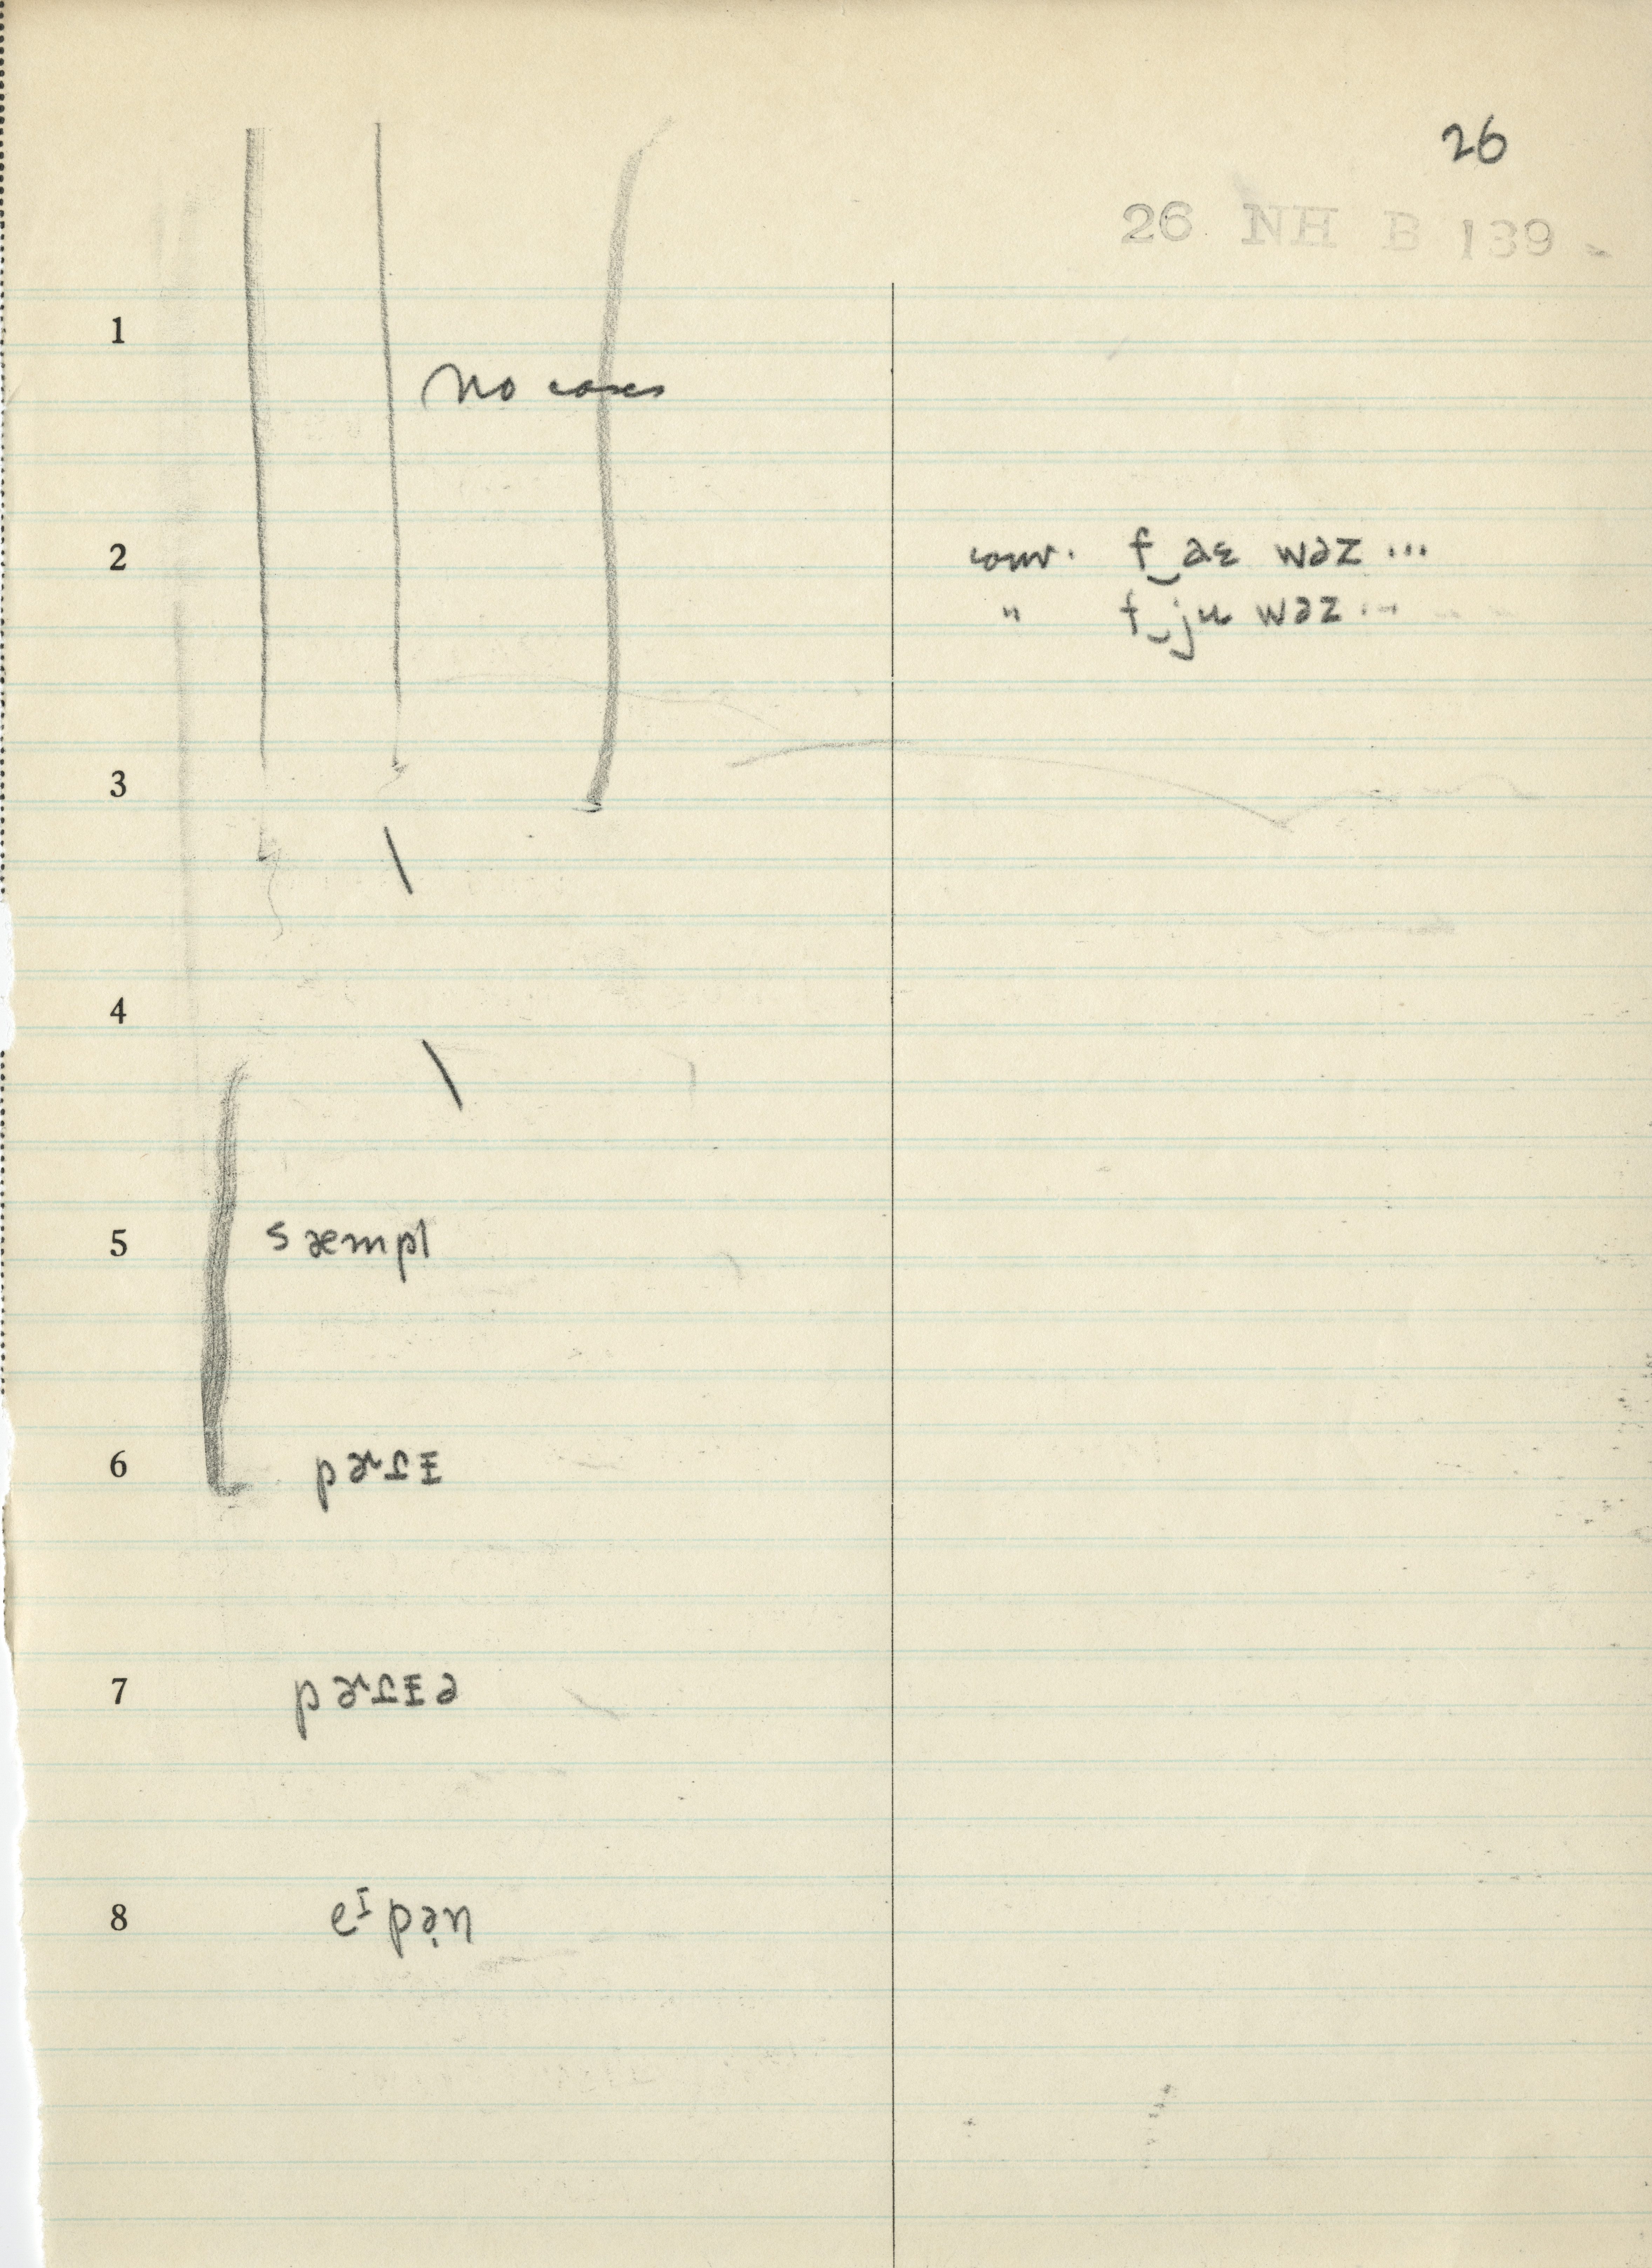 26
26 NH B 139
1
no cases
2 conv. f‿aɛ wəz ...
" f‿ju wəz ...
3
4
5 sæmpl
6
7
8 eᴵpən